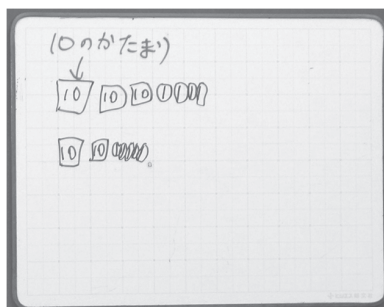 10のかたまり
10 10 10 1 1 1 1
10 10